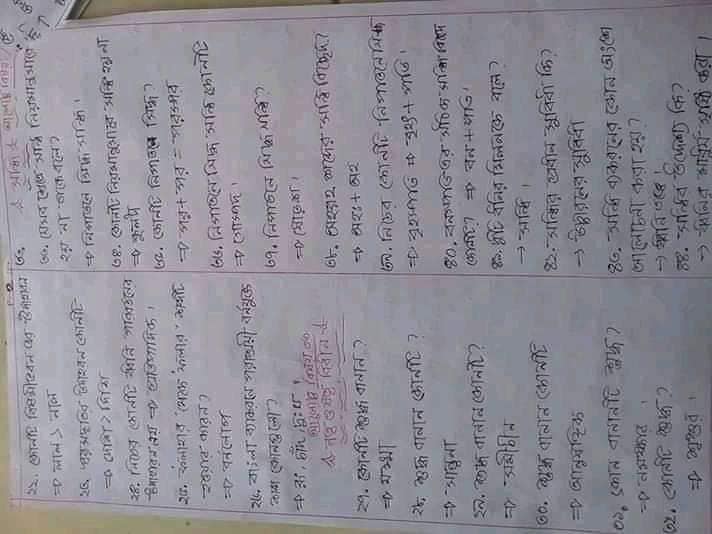 ২২. কোনটি বিষমীভবন এর উদাহরণ
⇒ লাল > নাল
২৩. স্বরসঙ্গতির উদাহরণ কোনটি
⇒ দেশি > দিশি
২৪. নিচের কোনটি ধ্বনি পরিবর্তনের
উদাহরণ নয় ⇒ প্রাতিপাদিক।
২৫. 'ফলাহার' থেকে 'ফলার' শব্দটি
হওয়ার কারন?
⇒ বর্নলোপ
২৬. বাংলা ব্যাকরনে পরাশ্রয়ী বর্নযুক্ত
শব্দ কোনগুলো?
⇒ রং, চাঁদ, দুঃখ।
আলোচ্য বিষয় ০৩
ণত্ব ও ষত্ব বিধান
২৭. কোনটি শুদ্ধ বানান?
⇒ যক্ষ্মা
২৮. শুদ্ধ বানান কোনটি?
⇒ সান্ত্বনা
২৯. শুদ্ধ বানান কোনটি?
⇒ সমীচীন
৩০. শুদ্ধ বানান কোনটি
⇒ আনুষঙ্গিক
৩১. কোন বানানটি শুদ্ধ?
⇒ নমস্কার।
৩২. কোনটি শুদ্ধ?
⇒ শ্বশুর।
৩৩.
সন্ধি আলোচ্য বিষয়
৩৩. যেসব ক্ষেত্রে সন্ধি নিয়মানুসারে
হয় না তাকে বলে?
⇒ নিপাতনে সিদ্ধ সন্ধি।
৩৪. কোনটি নিয়মানুসারে সন্ধি হয় না
⇒ কুলটা
৩৫. কোনটি নিপাতনে সিদ্ধ?
⇒ পর + পর = পরস্পর
৩৬. নিপাতনে সিদ্ধ সন্ধি কোনটি
⇒ গোষ্পদ।
৩৭. নিপাতনে সিদ্ধ সন্ধি?
⇒ ষোড়শ।
৩৮. অহরহ শব্দের সন্ধি বিচ্ছেদ?
⇒ অহঃ + অহ
৩৯. নিচের কোনটি নিপাতনে সিদ্ধ
⇒ বৃহস্পতি ⇒ বৃহৎ + পতি।
৪০. বনস্পতির সঠিক সন্ধি বিচ্ছেদ
কোনটি? ⇒ বন + পতি।
৪১. দুটি ধ্বনির মিলনকে বলে?
→ সন্ধি।
৪২. সন্ধির প্রধান সুবিধা কি?
→ উচ্চারনের সুবিধা
৪৩. সন্ধি ব্যকরনের কোন অংশে
আলোচনা করা হয়?
→ ধ্বনি তত্ত্বে।
৪৪. সন্ধির উদ্দেশ্য কি?
→ ধ্বনির মাধুর্য সৃষ্টি করা।